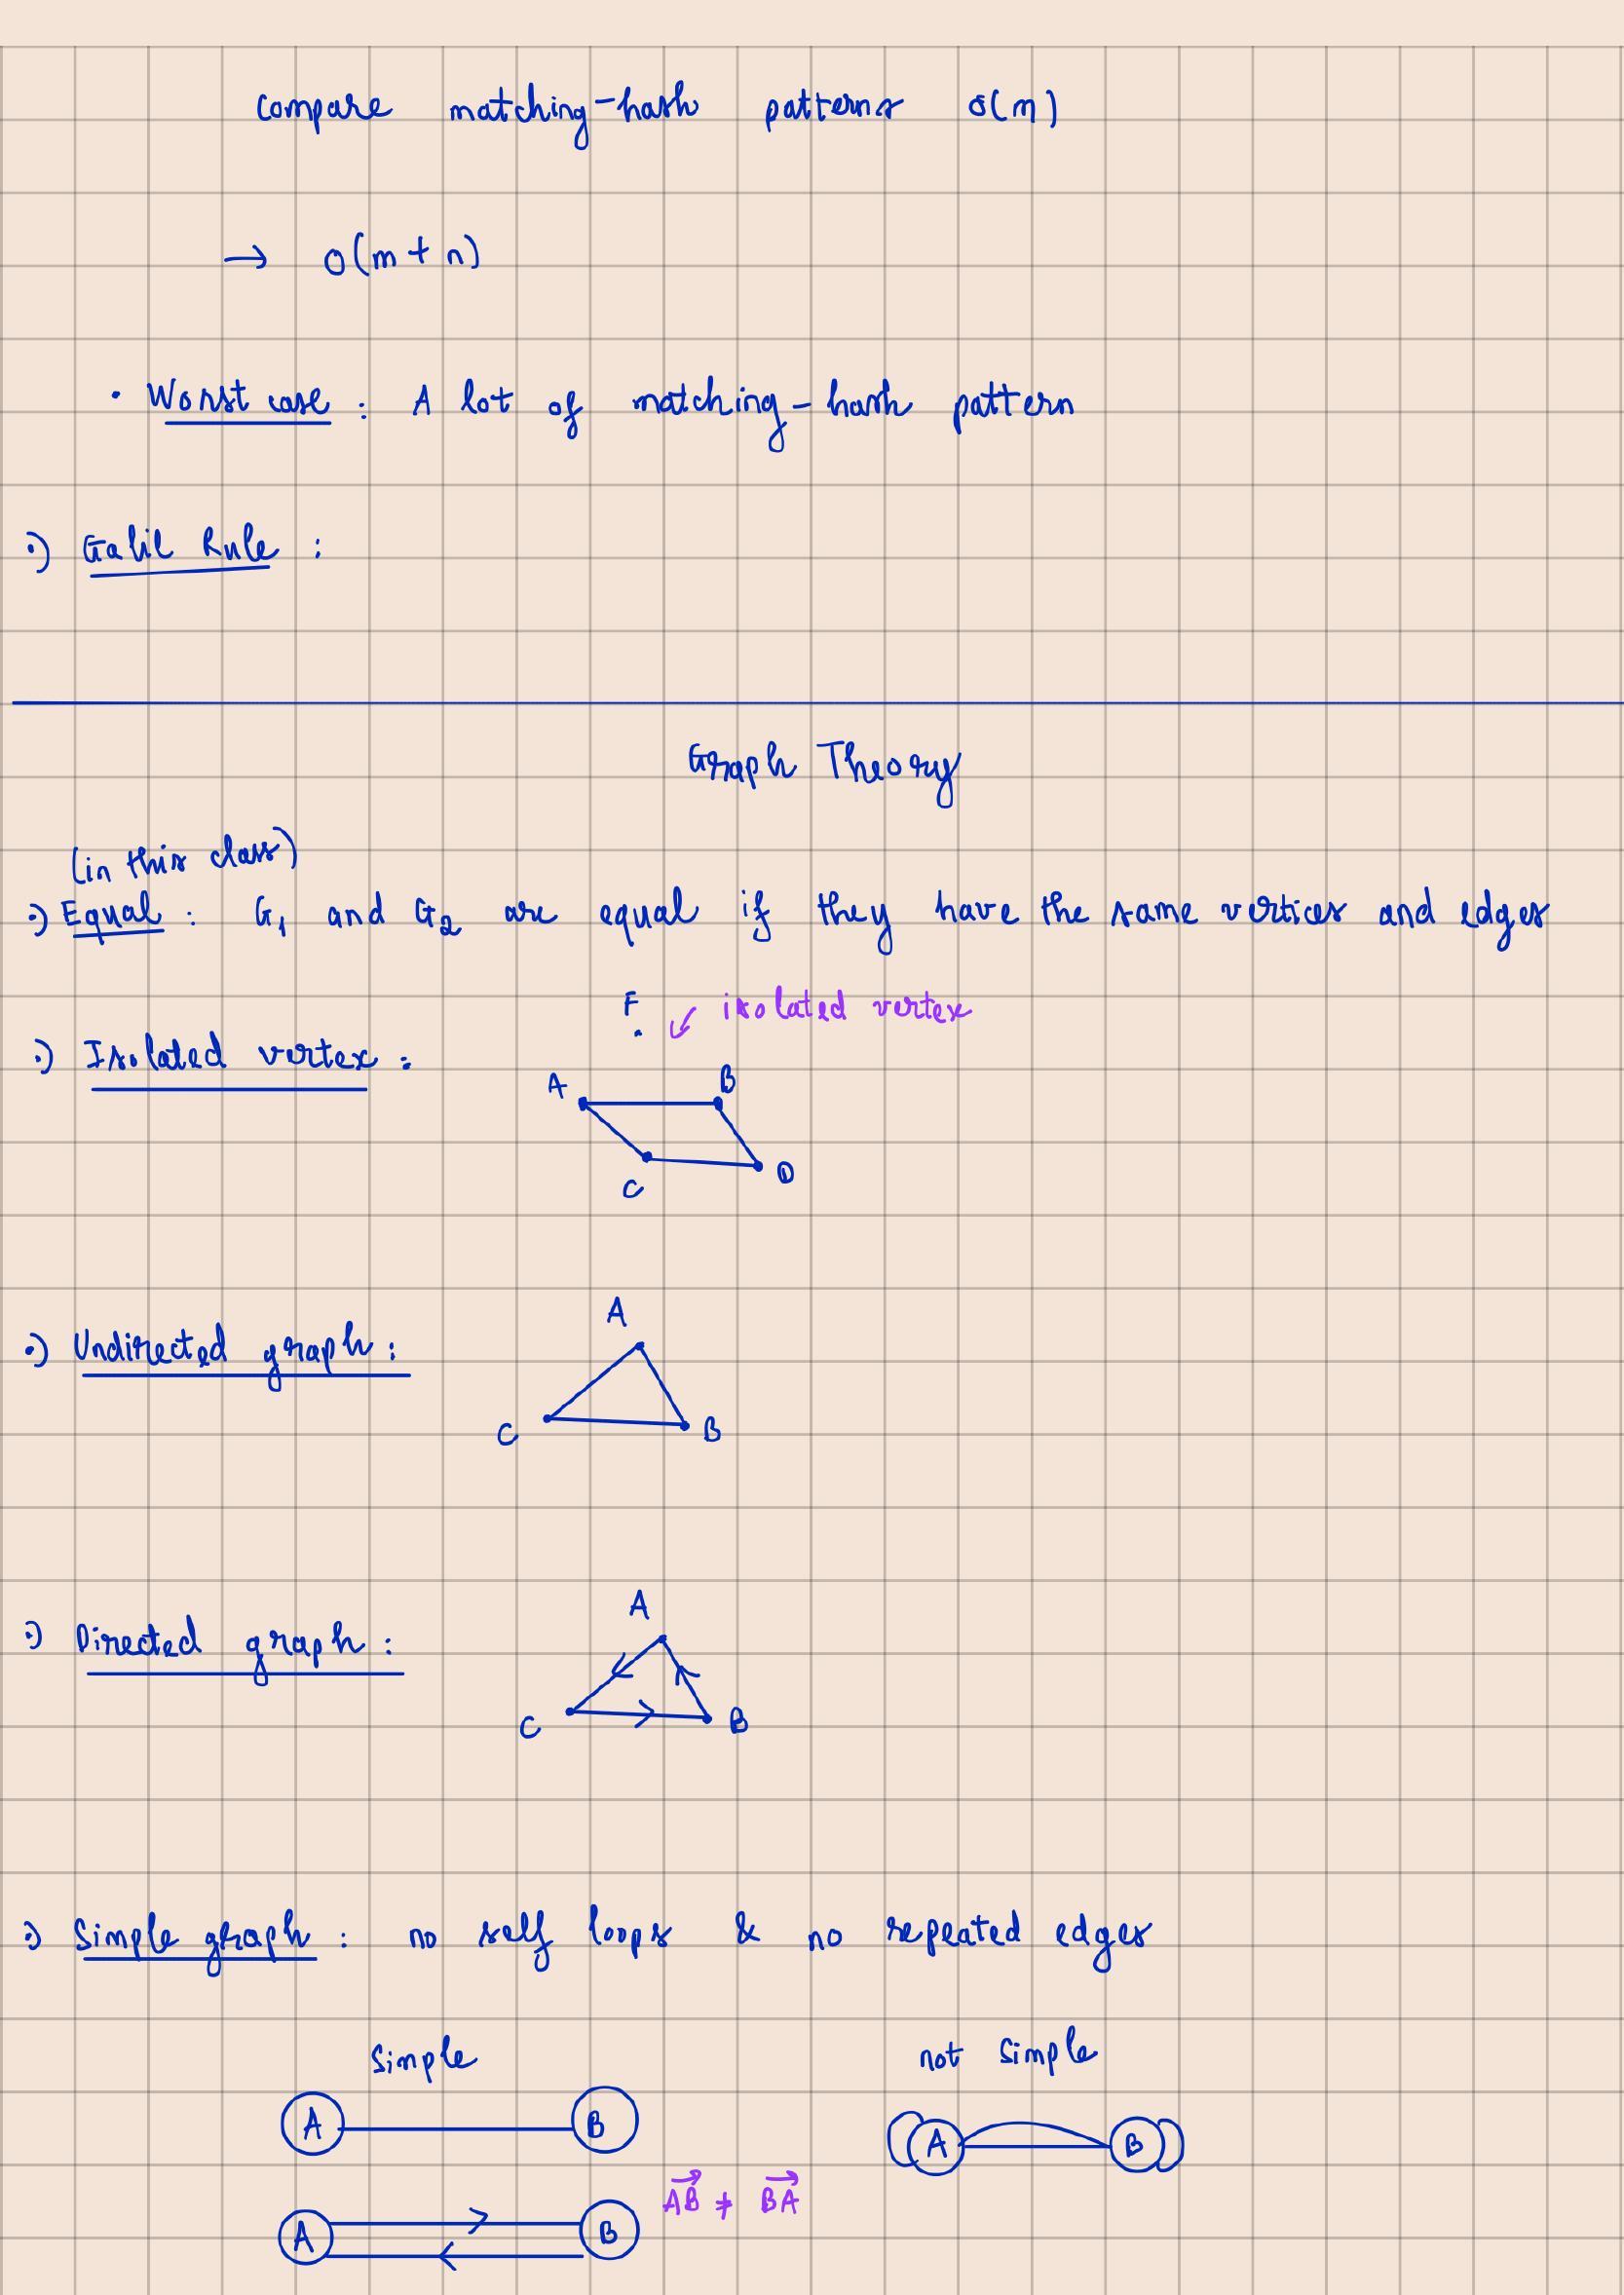 Compare matching-hash patterns O(m)
→ O(m + n)
• Worst case : A lot of matching-hash pattern
•) Galil Rule :
Graph Theory
(in this class)
•) Equal : G₁ and G₂ are equal if they have the same vertices and edges
F
isolated vertex
•) Isolated vertex :
A B
C D
A
•) Undirected graph :
C B
A
•) Directed graph :
C B
•) Simple graph : no self loops & no repeated edges
Simple not simple
A B A B
AB ≠ BA
A B